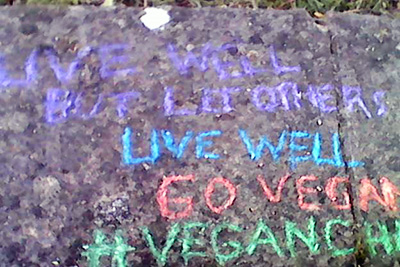 LIVE WELL
BUT LET OTHERS
LIVE WELL
GO VEGAN
#VEGANCH